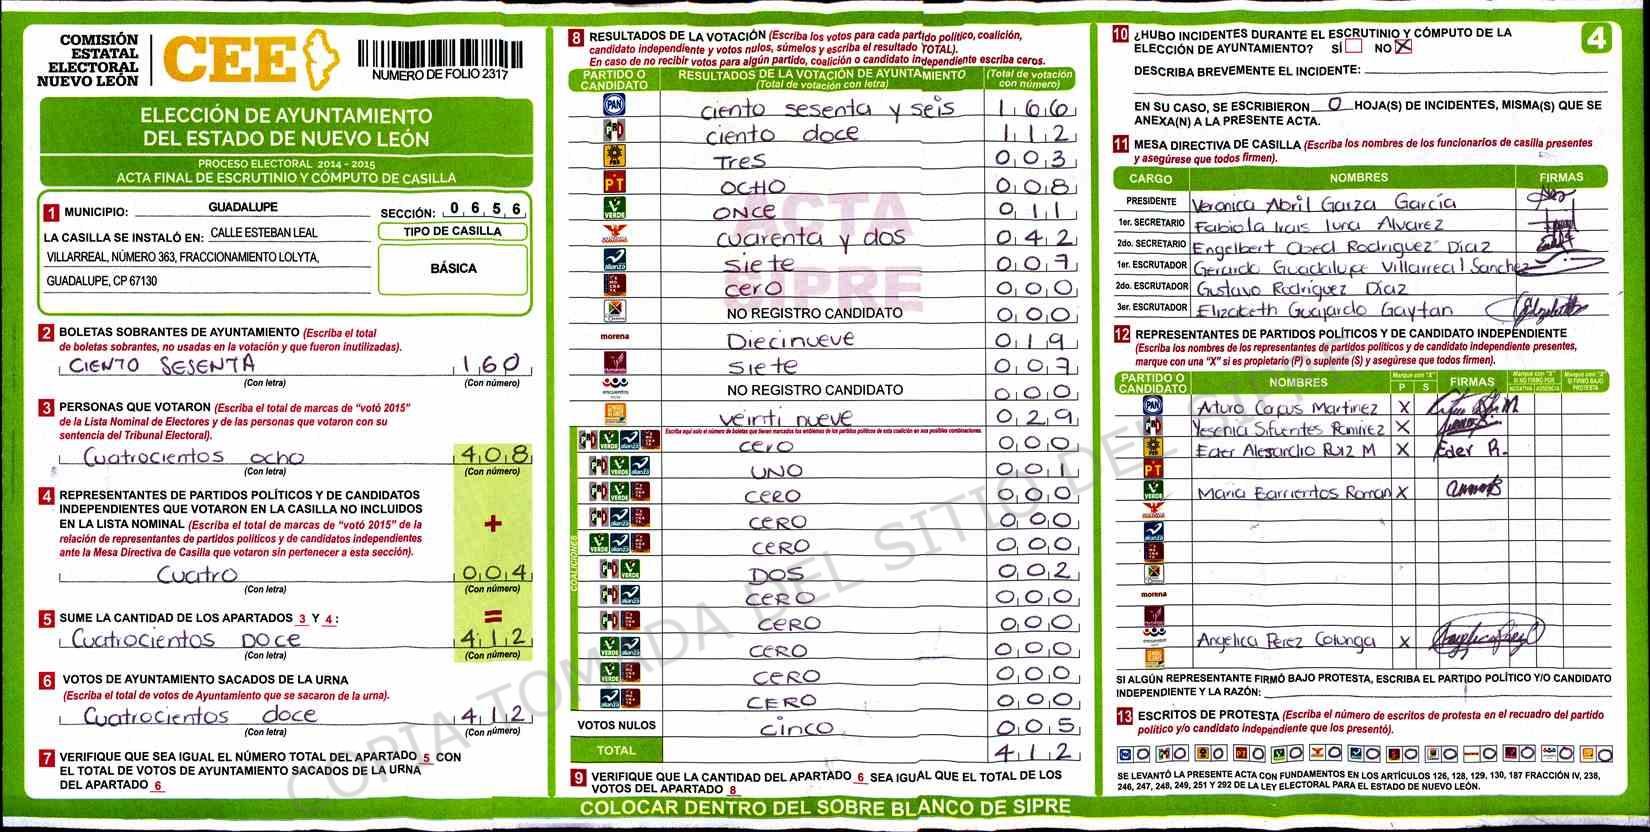 COMISIÓN
ESTATAL
ELECTORAL
NUEVO LEÓN
CEE
NUMERO DE FOLIO 2317
ELECCIÓN DE AYUNTAMIENTO
DEL ESTADO DE NUEVO LEÓN
PROCESO ELECTORAL 2014 - 2015
ACTA FINAL DE ESCRUTINIO Y CÓMPUTO DE CASILLA
1 MUNICIPIO: GUADALUPE SECCIÓN: 0 6 5 6
LA CASILLA SE INSTALÓ EN: CALLE ESTEBAN LEAL
VILLARREAL, NÚMERO 363, FRACCIONAMIENTO LOLYTA,
GUADALUPE, CP 67130
TIPO DE CASILLA
BÁSICA
2 BOLETAS SOBRANTES DE AYUNTAMIENTO (Escriba el total
de boletas sobrantes, no usadas en la votación y que fueron inutilizadas).
CIENTO SESENTA 160
(Con letra) (Con número)
3 PERSONAS QUE VOTARON (Escriba el total de marcas de "votó 2015"
de la Lista Nominal de Electores y de las personas que votaron con su
sentencia del Tribunal Electoral).
Cuatrocientos ocho 408
(Con letra) (Con número)
4 REPRESENTANTES DE PARTIDOS POLÍTICOS Y DE CANDIDATOS
INDEPENDIENTES QUE VOTARON EN LA CASILLA NO INCLUIDOS
EN LA LISTA NOMINAL (Escriba el total de marcas de "votó 2015" de la
relación de representantes de partidos políticos y de candidatos independientes
ante la Mesa Directiva de Casilla que votaron sin pertenecer a esta sección).
+
Cuatro 004
(Con letra) (Con número)
=
5 SUME LA CANTIDAD DE LOS APARTADOS 3 Y 4:
Cuatrocientos Doce 412
(Con letra) (Con número)
6 VOTOS DE AYUNTAMIENTO SACADOS DE LA URNA
(Escriba el total de votos de Ayuntamiento que se sacaron de la urna).
Cuatrocientos doce 412
(Con letra) (Con número)
7 VERIFIQUE QUE SEA IGUAL EL NÚMERO TOTAL DEL APARTADO 5 CON
EL TOTAL DE VOTOS DE AYUNTAMIENTO SACADOS DE LA URNA
DEL APARTADO 6
8 RESULTADOS DE LA VOTACIÓN (Escriba los votos para cada partido político, coalición,
candidato independiente y votos nulos, súmelos y escriba el resultado TOTAL).
En caso de no recibir votos para algún partido, coalición o candidato independiente escriba ceros.
PARTIDO O CANDIDATO RESULTADOS DE LA VOTACIÓN DE AYUNTAMIENTO (Total de votación con letra) (Total de votación con número)
PAN ciento sesenta y seis 166
PRD ciento doce 112
PRD Tres 003
PT OCHO 008
VERDE ONCE 011
cuarenta y dos 042
alianza siete 007
cero 000
NO REGISTRO CANDIDATO 000
morena Diecinueve 019
siete 007
encuentro NO REGISTRO CANDIDATO 000
veinti nueve 029
Escriba aquí solo el número de boletas que tienen marcados los emblemas de los partidos políticos de esta coalición en sus posibles combinaciones.
COALICIONES
cero 000
UNO 001
CERO 000
CERO 000
CERO 000
DOS 002
CERO 000
CERO 000
CERO 000
CERO 000
CERO 000
VOTOS NULOS cinco 005
TOTAL 412
9 VERIFIQUE QUE LA CANTIDAD DEL APARTADO 6 SEA IGUAL QUE EL TOTAL DE LOS
VOTOS DEL APARTADO 8
COLOCAR DENTRO DEL SOBRE BLANCO DE SIPRE
ACTA
SIPRE
COPIA TOMADA DEL SITIO DEL SIPRE
10 ¿HUBO INCIDENTES DURANTE EL ESCRUTINIO Y CÓMPUTO DE LA
ELECCIÓN DE AYUNTAMIENTO? SÍ NO X
4
DESCRIBA BREVEMENTE EL INCIDENTE:
EN SU CASO, SE ESCRIBIERON 0 HOJA(S) DE INCIDENTES, MISMA(S) QUE SE
ANEXA(N) A LA PRESENTE ACTA.
11 MESA DIRECTIVA DE CASILLA (Escriba los nombres de los funcionarios de casilla presentes
y asegúrese que todos firmen).
CARGO NOMBRES FIRMAS
PRESIDENTE Veronica Abril Garza García
1er. SECRETARIO Fabiola Irais Luna Alvarez
2do. SECRETARIO Engelbert Obed Rodriguez Díaz
1er. ESCRUTADOR Gerardo Guadalupe Villarreal Sanchez
2do. ESCRUTADOR Gustavo Rodríguez Díaz
3er. ESCRUTADOR Elizabeth Guajardo Gaytan
12 REPRESENTANTES DE PARTIDOS POLÍTICOS Y DE CANDIDATO INDEPENDIENTE
(Escriba los nombres de los representantes de partidos políticos y de candidato independiente presentes,
marque con una "X" si es propietario (P) o suplente (S) y asegúrese que todos firmen).
PARTIDO O CANDIDATO NOMBRES Marque con "X" P S FIRMAS Marque con "X" SI NO FIRMÓ POR NEGATIVA AUSENCIA Marque con "X" SI FIRMÓ BAJO PROTESTA
PAN Arturo Corpus Martinez X
Yesenia Sifuentes Ramirez X
PRD Eder Alesardio Ruiz M X Eder R.
PT
VERDE Maria Barrientos Roman X
alianza
morena
encuentro Angelica Perez Colunga X
SI ALGÚN REPRESENTANTE FIRMÓ BAJO PROTESTA, ESCRIBA EL PARTIDO POLÍTICO Y/O CANDIDATO
INDEPENDIENTE Y LA RAZÓN:
13 ESCRITOS DE PROTESTA (Escriba el número de escritos de protesta en el recuadro del partido
político y/o candidato independiente que los presentó).
0 0 0 0 0 0 0 0 0 0 0 0 0
SE LEVANTÓ LA PRESENTE ACTA CON FUNDAMENTOS EN LOS ARTÍCULOS 126, 128, 129, 130, 187 FRACCIÓN IV, 238,
246, 247, 248, 249, 251 Y 292 DE LA LEY ELECTORAL PARA EL ESTADO DE NUEVO LEÓN.